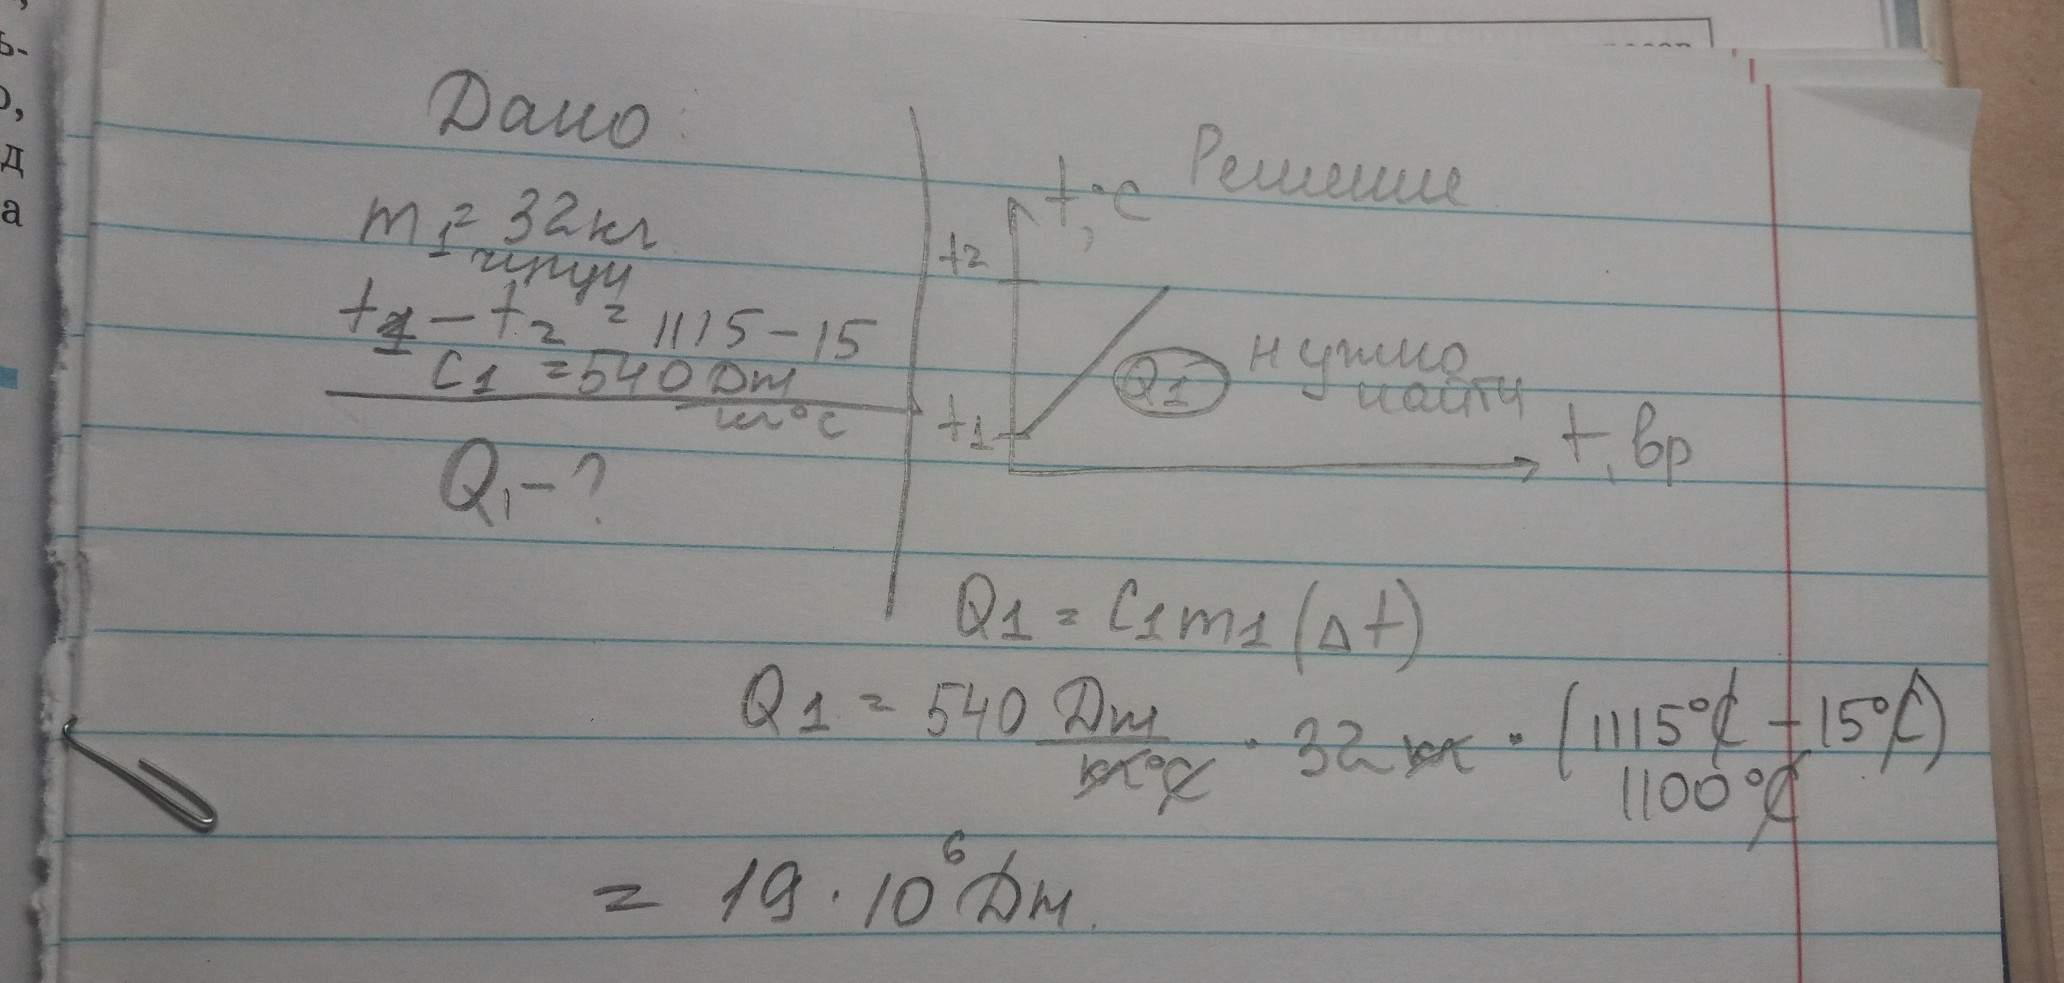 ь-
о,
д
а
Дано:
m1 = 32 кг
чугун
t1 – t2 = 1115 – 15
C1 = 540 Дж
кг°C
Q1 – ?
Решение
t, °C
t2
Q1 нужно
найти
t1
t, вр
Q1 = C1m1 (Δt)
Q1 = 540 Дж · 32 кг · (1115°C – 15°C)
кг°C
1100°C
= 19 · 10⁶ Дж.